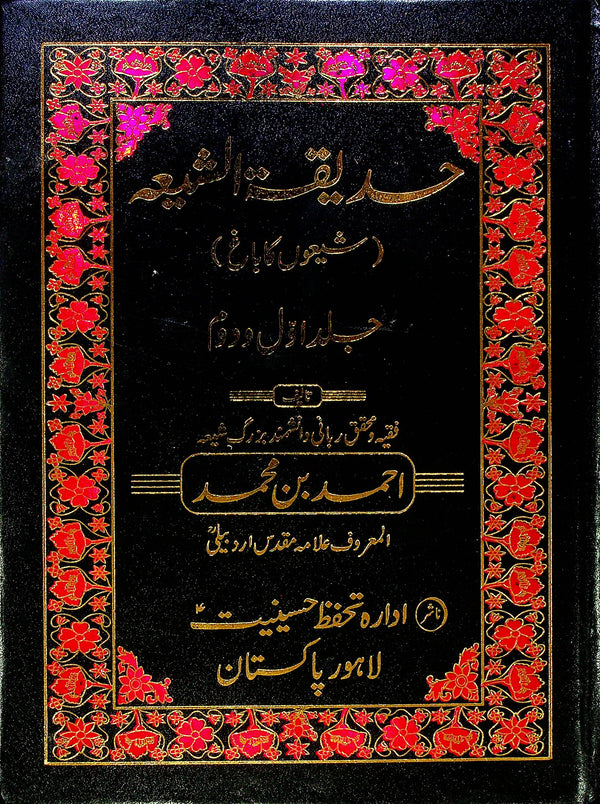 حدیقۃ الشیعہ
(شیعوں کا باغ)
جلد اوّل و دوم
تالیف
فقیہ و محقق ربانی دانشمند بزرگ شیعہ
احمد بن محمد
المعروف علامہ مقدس اردبیلیؒ
ناشر ادارہ تحفظ حسینیت ؑ
لاہور پاکستان